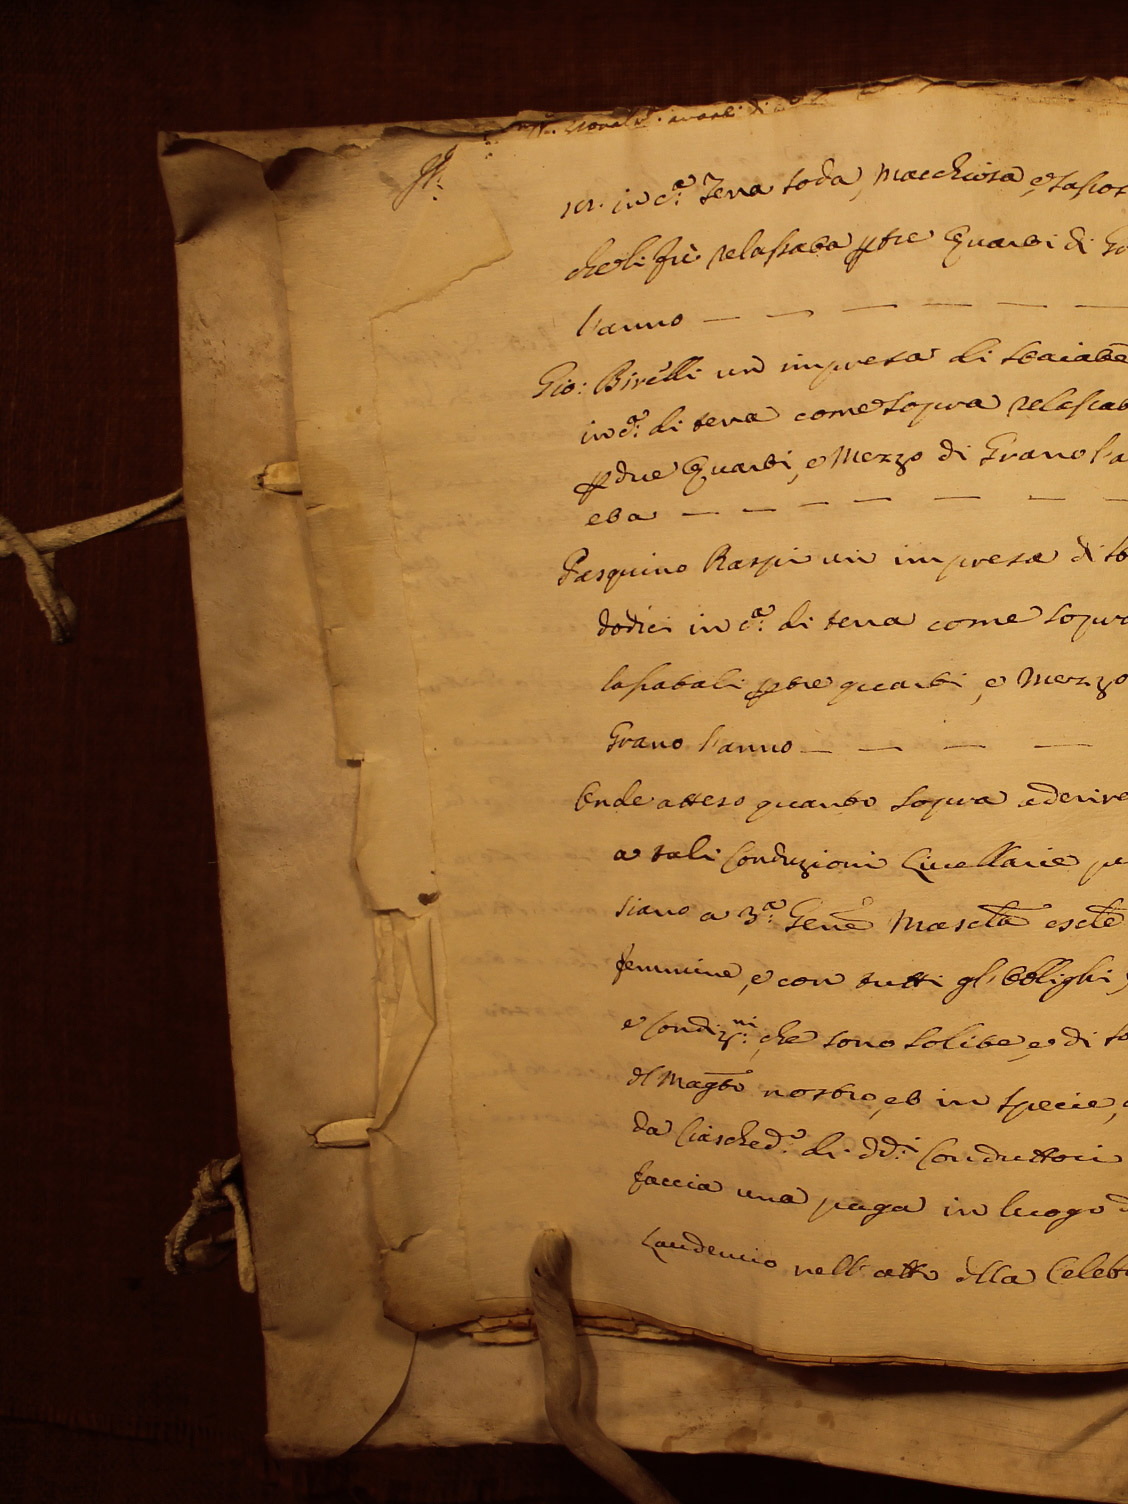 in c.ª Terra soda, Macchiosa, e sassos
che li fù relassata p tre Quarti di G
l'anno — — — — —
Gio: Birelli un impresa di staiate
in c.ª di terra come sopra relassat
p due Quarti, e Mezzo di Grano l'a
— — — — —
Pasquino Raspi un impresa di
dodici in c.ª di terra come sopra
lassatali p tre quarti, e Mezzo
Grano l'anno — — — —
atteso quanto sopra
a tali Conduzioni Livellarie
siano a 3.ª Gene Mascta esclte
femmine, e con tutti gl'Obblighi,
e Condiz.ni che sono solite, e di
dl Magto nostro, et in specie,
da Ciasched.º di dd.i Conduttori
faccia una paga in luogo
Laudemio nell'atto dlla Celeb